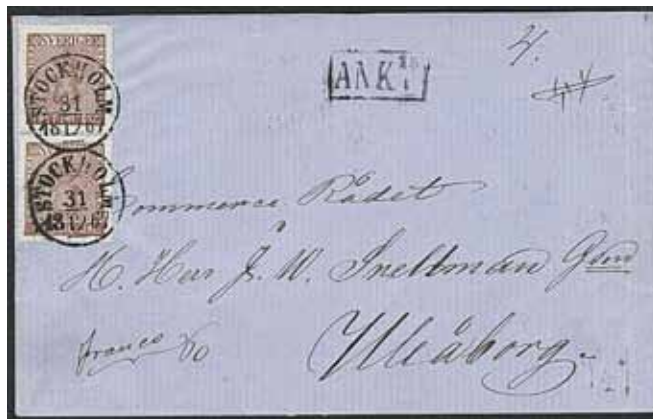 SVERIGE
STOCKHOLM
31
1812 67
STOCKHOLM
31
1812 67
ANKT
4.
Commerce Rådet
H. Herr J. W. Snellman G son
Uleåborg.
franco 60